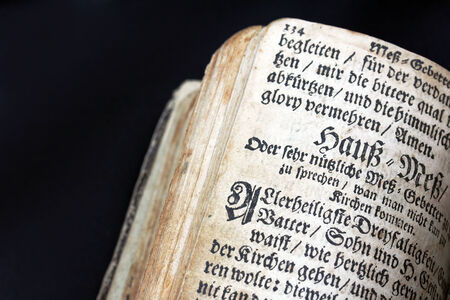 134 Meß-Gebetter
begleiten / für der verdam
tzen / mir die bittere qual
abkürtzen / und die himmlisch
glory vermehren / Amen.
Hauß-Meß /
Oder sehr nützliche Meß-Gebetter
zu sprechen / wan man nicht kan
Kirchen kommen.
Allerheiligste Dreyfaltigkeit /
Vatter / Sohn und H.
waist / wie hertzlich gern
der Kirchen gehen / und
ren wolte: dieweil
nit kan